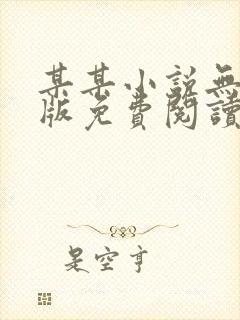 某某小説無
版免費閱讀
是空亨